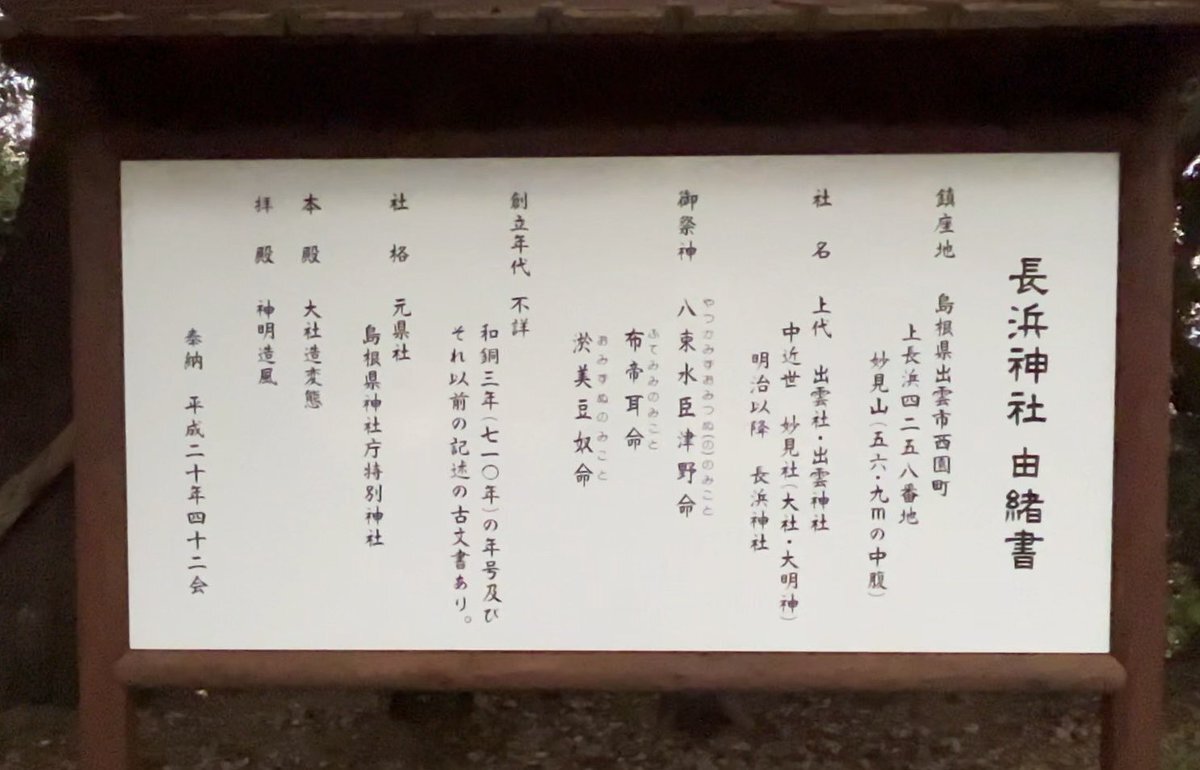 長浜神社 由緒書
鎮座地 島根県出雲市西園町
上長浜四二五八番地
妙見山(五六・九mの中腹)
社名 上代 出雲社・出雲神社
中近世 妙見社(大社・大明神)
明治以降 長浜神社
やつかみずおみつぬ(の)のみこと
御祭神 八束水臣津野命
ふてみみのみこと
布帝耳命
おみずぬのみこと
淤美豆奴命
創立年代 不詳
和銅三年(七一〇年)の年号及び
それ以前の記述の古文書あり。
社格 元県社
島根県神社庁特別神社
本殿 大社造変態
拝殿 神明造風
奉納 平成二十年四十二会